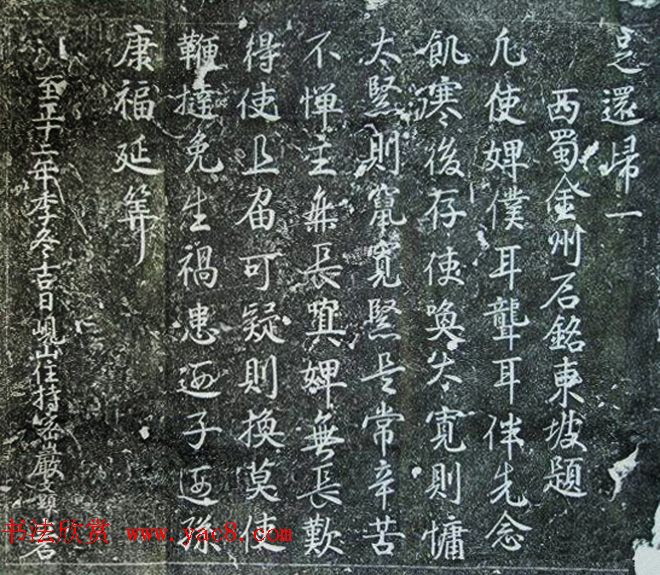 足還歸一
西蜀金州石銘東坡題
凢使婢僕耳聾耳伴先念
飢寒後存使喚太寬則慵
太緊則竄寬緊是常辛苦
不憚主無長冀婢無長歎
得使且畱可疑則換莫使
鞭撻免生禍患迊子迊孫
康福延筭
至正十二年季冬吉日峴山住持宻嚴立石
书法欣赏 www.yac8.com